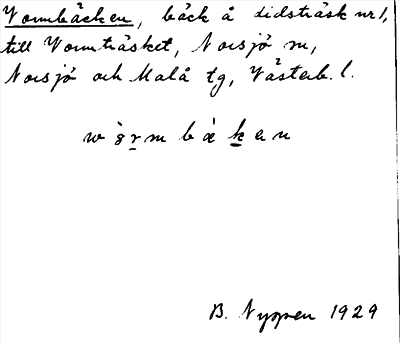 Vormbäcken, bäck å Lidsträsk nr 1,
till Vormträsket, Norsjö sn,
Norsjö och Malå tg, Västerb. l.
B. Nygren 1929